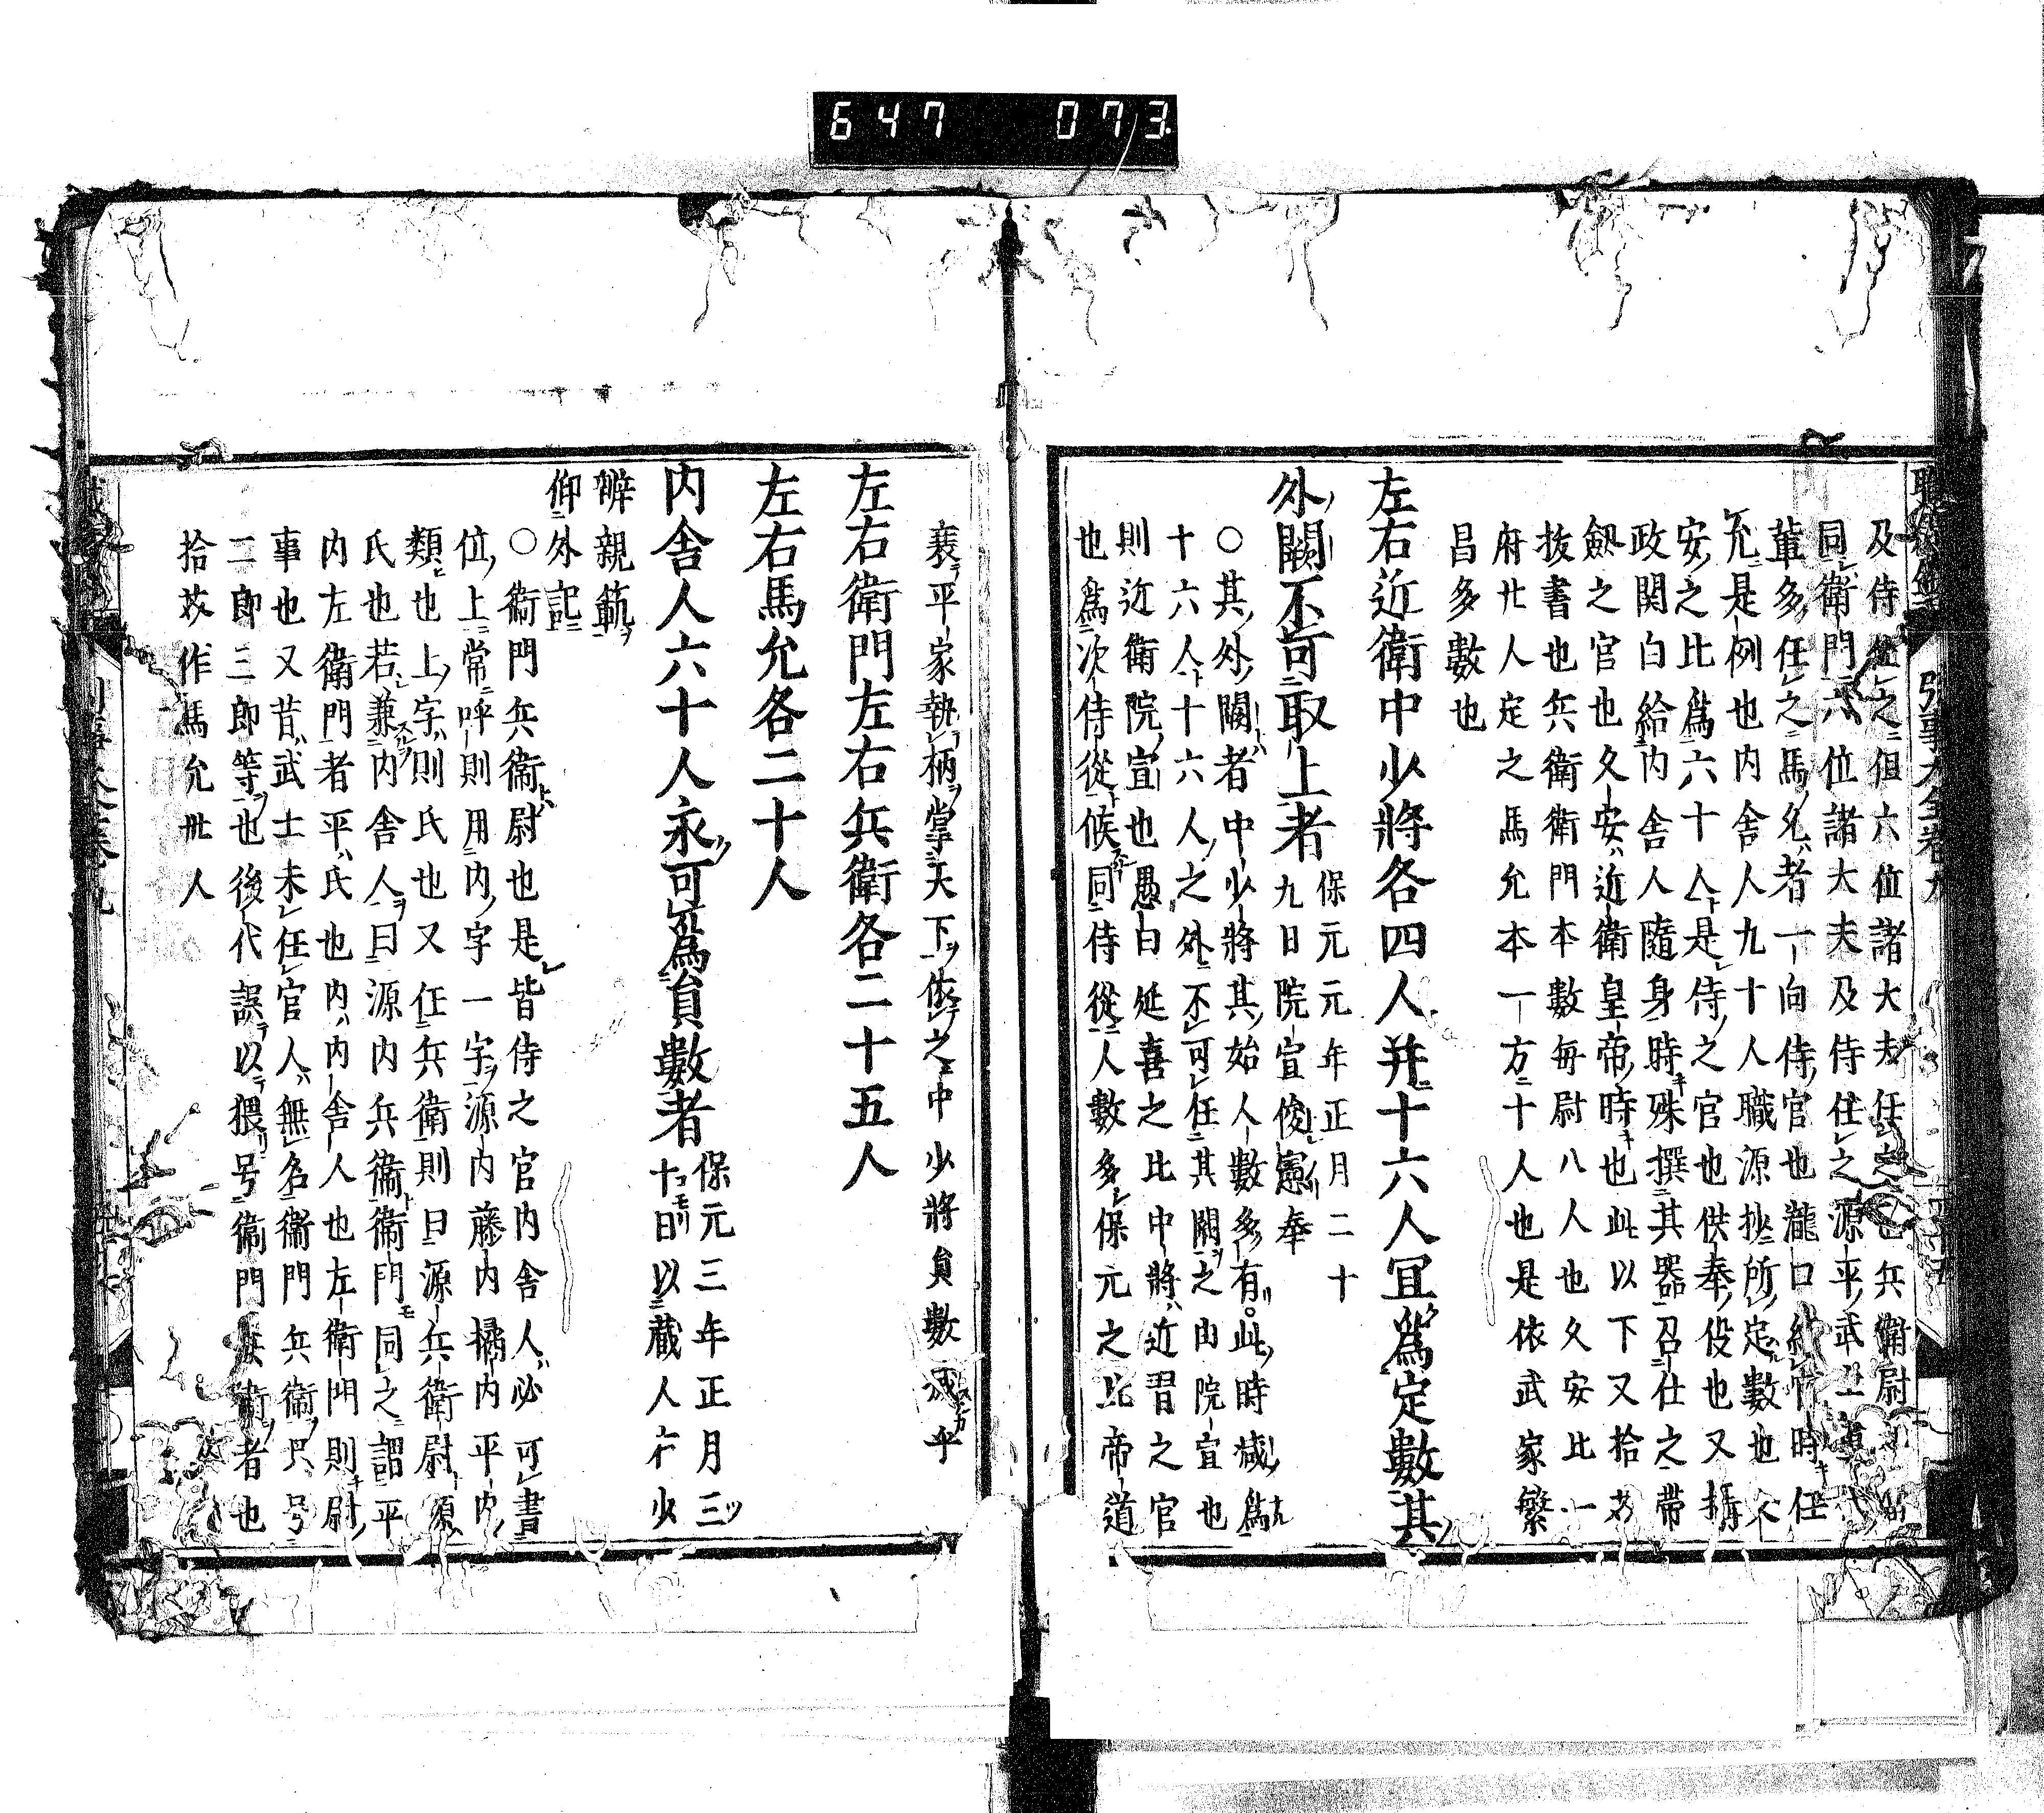 647 073
及侍從之但六位諸大夫任之兵衛尉
同衛門六位諸大夫及侍任之源平武
輩多任之馬允者一向侍官也瀧口時任
允是例也内舎人九十人職源抄所定數也
安之比爲六十人是侍之官也供奉役也又攝
政関白給内舎人隨身時殊撰其器召仕之帶
劔之官也久安近衛皇帝時也此以下又拾
抜書也兵衛衛門本數毎尉八人也久安比一
府廿人定之馬允本一方十人也是依武家繁
昌多數也
左右近衛中少將各四人并十六人冝爲定數其
外闕不可取上者
保元元年正月二十
九日院宣俊憲奉
○其外闕者中少將其始人數多有此時減爲
十六人十六人之外不可任其闕之由院宣也
則近衛院宣也愚曰延喜之比中將近習之官
也爲次侍從候同侍從人數多保元之比帝道
衰平家執柄掌天下依之中少將員數減乎
左右衛門左右兵衛各二十五人
左右馬允各二十人
内舎人六十人永可爲員數者
保元三年正月三
十日以藏人少
辨親範
仰外記
○衞門兵衞尉也是皆侍之官内舎人必可書
位上常呼則用内字一字源内藤内橘内平内
類也上字則氏也又任兵衛則曰源兵衛尉源
氏也若兼内舎人曰源内兵衞衞門同之謂平
内左衛門者平氏也内内舎人也左衛門則尉
事也又昔武士未任官人無名衞門兵衞只号
二郎三郎等也後代誤以猥号衞門兵衞者也
拾芥作馬允卅人